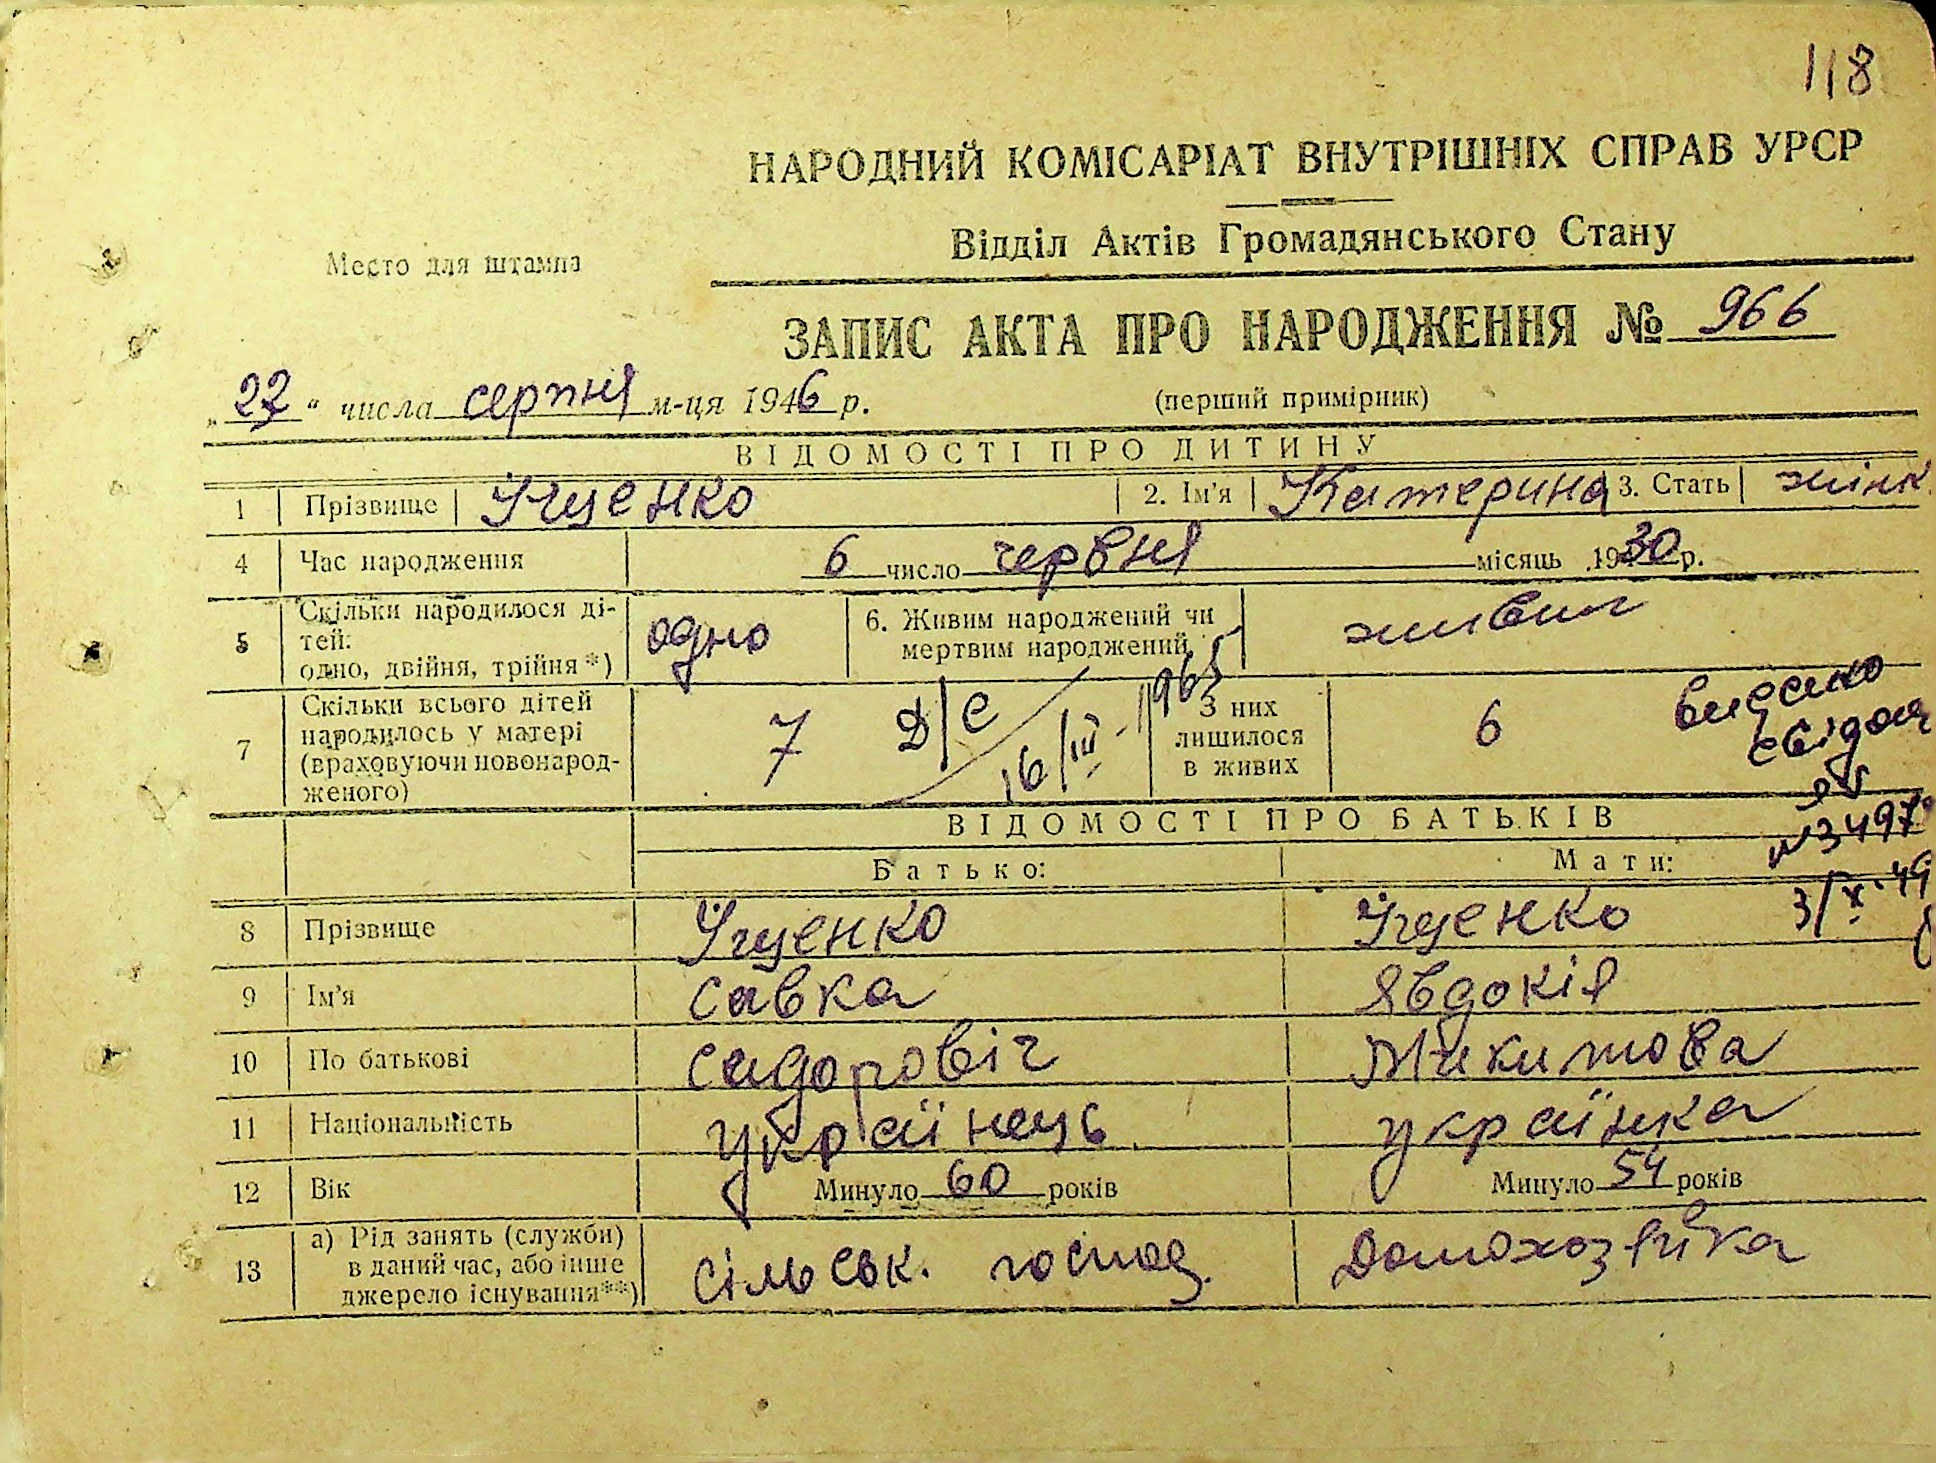 118
НАРОДНИЙ КОМІСАРІАТ ВНУТРІШНІХ СПРАВ УРСР
Відділ Актів Громадянського Стану
Место для штампа
ЗАПИС АКТА ПРО НАРОДЖЕННЯ № 966
„22“ числа серпня м-ця 1946 р.
(перший примірник)
ВІДОМОСТІ ПРО ДИТИНУ
1 Прізвище Іщенко 2. Ім'я Катерина 3. Стать жінк.
4 Час народження 6 число червня місяць 1930 р.
5 Скільки народилося ді-
тей:
одно, двійня, трійня*)
одно
6. Живим народжений чи
мертвим народжений
живим
7 Скільки всього дітей
народилось у матері
(враховуючи новонарод-
женого)
7
Д/с
16/III-1965
З них
лишилося
в живих
6
видано
свідоц
№3497
3/X-49
ВІДОМОСТІ ПРО БАТЬКІВ
Батько: Мати:
8 Прізвище Іщенко Іщенко
9 Ім'я Савка Явдокія
10 По батькові Сидоровіч Микитова
11 Національність українець українка
12 Вік Минуло 60 років Минуло 54 років
13 а) Рід занять (служби)
в даний час, або інше
джерело існування**)
сільськ. господ. Домохозяйка